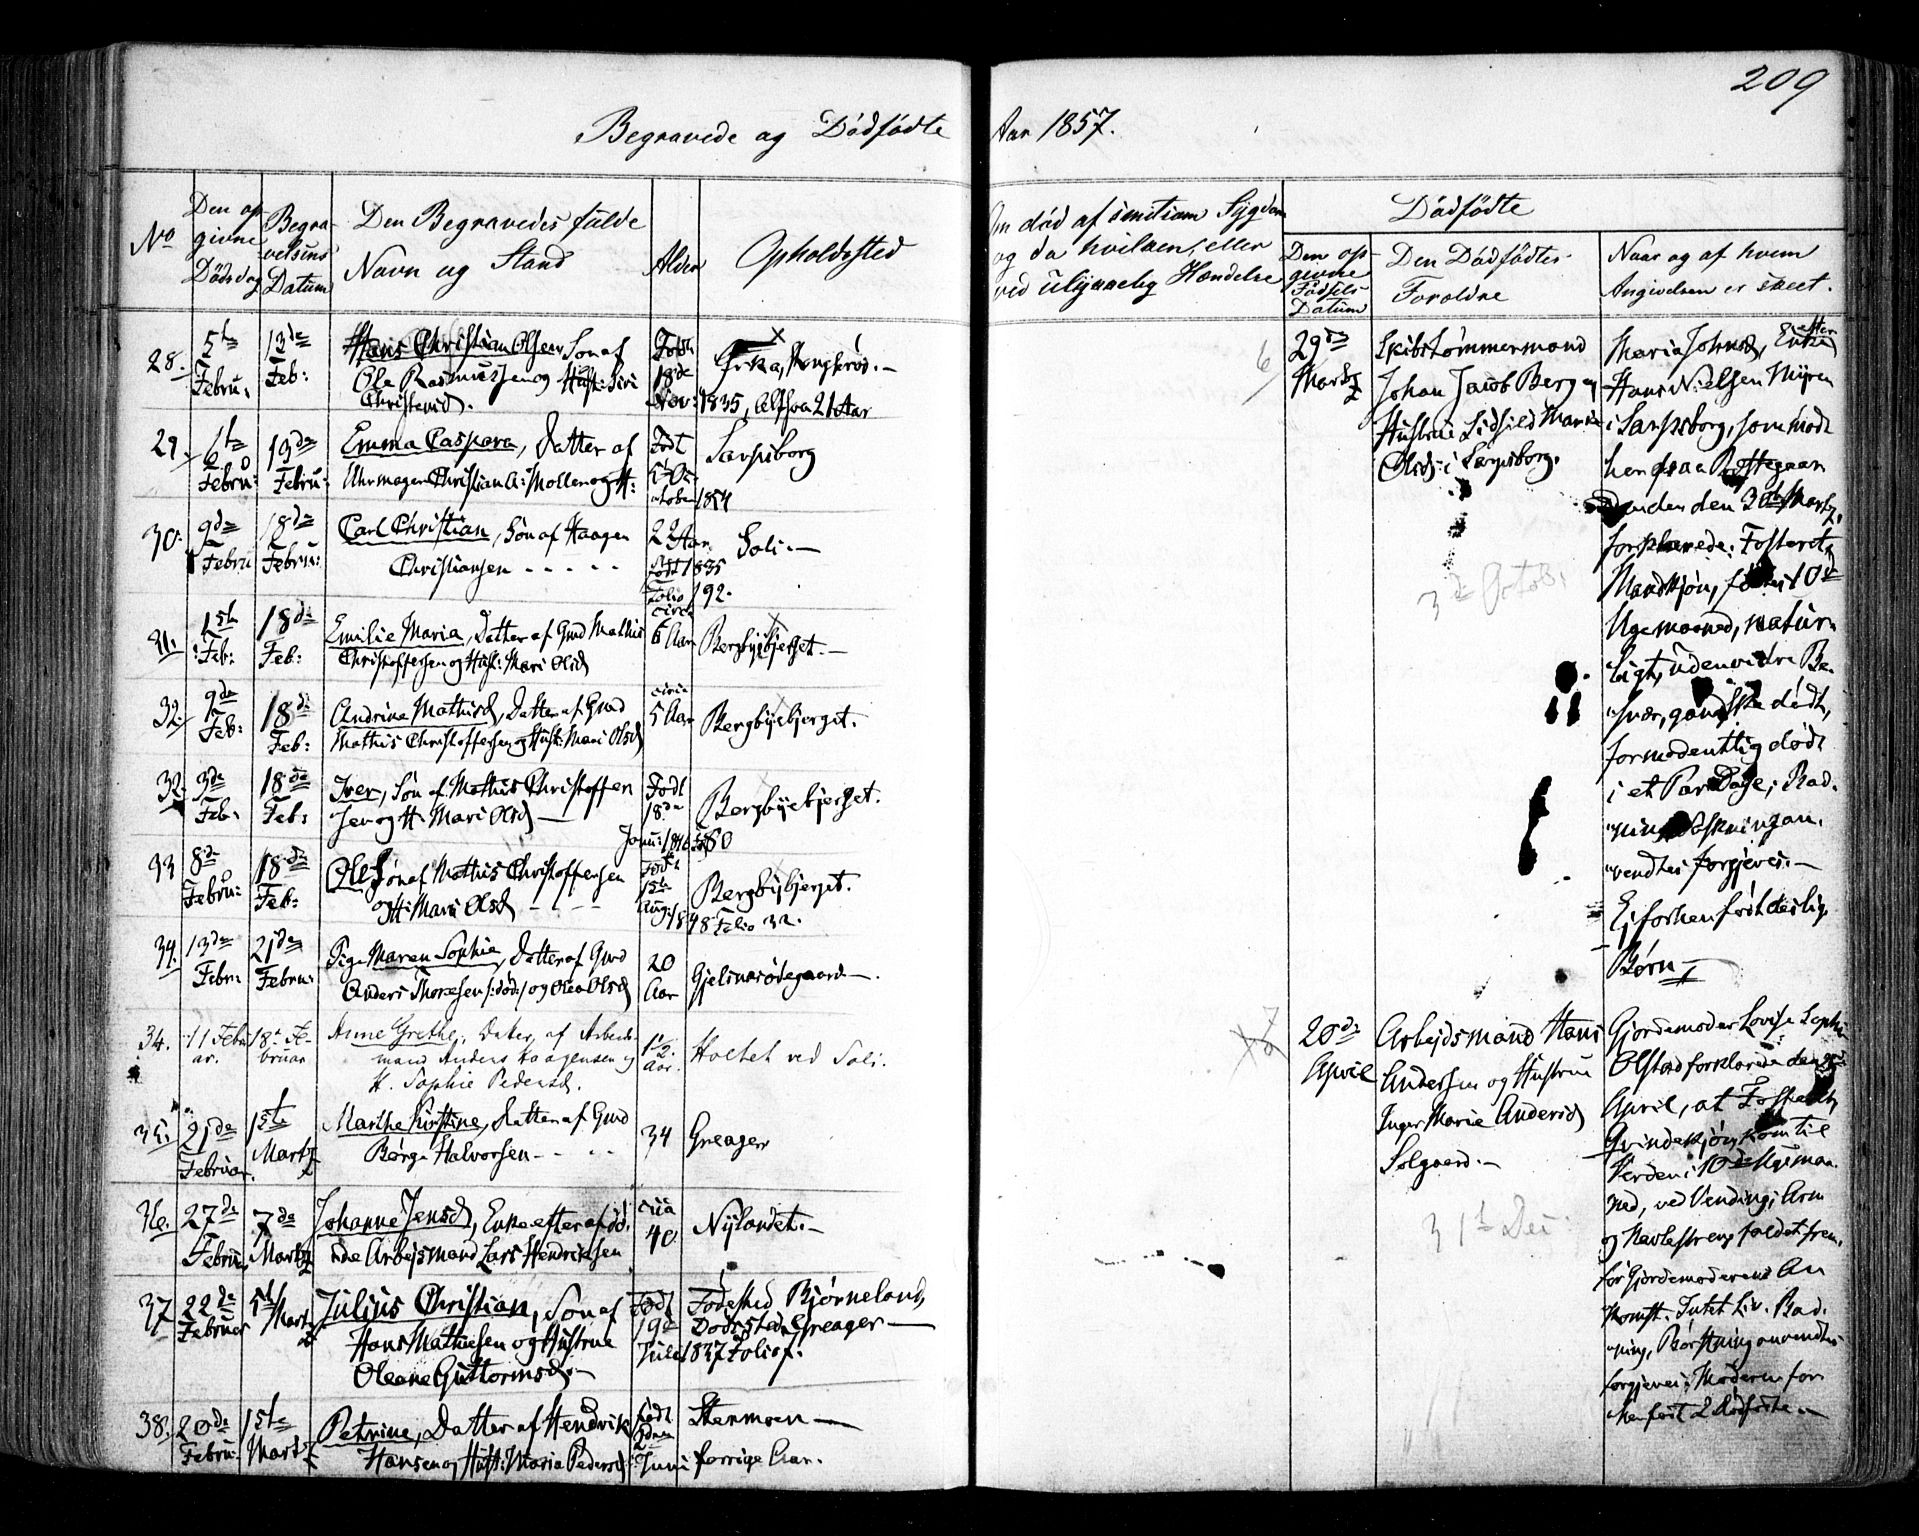 209
Begravede og Dödfödte
Aar 1857.
No
Den op
givne
Dödsdag
Begra-
velsens
Datum
Den Begravedes fulde
Navn og Stand
Alder
Opholdssted
Om död af smitsom Sygdom
og da hvilken, eller
ved ulykkelig Hændelse
Dödfödte
Den op-
givne
Födsels
Datum
Den Dödfödtes
Forældre
Naar og af hvem
Angivelsen er skeet.
28. 5te Febru: 13de Feb:
Hans Christian Olsen Son af
Ole Rasmussen og Hust: Siri
Christensd.
Födt 18de Nov: 1835, altsaa 21 Aar
29. 6te Febru: 13de Febru:
Emma Caspara, Datter af
Uhrmager Christian A: Moller og H:
Födt
October 1854
Sarpsborg
30. 9de Febru 18de Febru:
Carl Christian, Sön af Haagen
Christiansen - - - - -
22 Aar
födt 1835
Folio 192.
Soli. —
31. 1ste Feb: 18de Feb:
Emilie Maria, Datter af Gmd Mathis
Christoffersen og Hust: Mari Olsd
circa
6 Aar
Bergbyebjerget. —
32. 9de Feb: 18de Feb:
Andrine Mathisd, Datter af Gmd
Mathis Christoffersen og Hust: Mari Olsd
circa
5 Aar
Bergbyebjerget.
32. 3de Feb. 18de Feb:
Iver, Sön af Mathis Christoffer
sen og H: Mari Olsd —
Födt
18de
Janu: 1846 60
Bergbyebjerget.
33 8de Febru: 18de Feb:
Ole Sön af Mathis Christoffersen
og H: Mari Olsd - - - -
Födt
15te
Aug: 1848 Folio 32.
Bergbyebjerget.
34. 13de Febr: 21de Febru:
Pige Maren Sophie, Datter af Gmd
Anders Thoresen /: död :/ og Olea Olsd
20
Aar
Gjelsnæsödegaard —.
34. 11 Febru
ar. 18de Fe-
bruar
Anne Grethe, Datter af Arbeids-
mand Anders Haagensen og
H. Sophie Pedersd.
1½
Aar.
Holtet ved Soli.
35. 21de Februar. 1ste Martz
Marthe Kirstine, Datter af Gmd
Börge Halvorsen - - - -
34
Greager
36. 27de Febru, 7de Martz
Johanne Jensd, Enke efter afdö-
de Arbejdsmand Lars Hendriksen
cia
40
Nylandet. —
37 22de Februar 5te Martz
Julius Christian, Son af
Hans Mathiesen og Hustrue
Oleane Guttormsd. —
Födt
19de
Juli 1837 Folio 7.
Födested Björneland,
Dödssted Greager —
38. 20de Febru: 1ste Martz
Petrine, Datter af Hendrik
Hansen og Hust: Maria Pedersd:
födt
2den
Juni forrige Aar.
Stenmoen —
6
29de Martz
Skibstömmermand
Johan Jacob Berg og
Hustrue Lidseld Marie
Olsd: i Sarpsborg.
Maria Johnsd, Enke efter
Hans Nielsen Myren
i Sarpsborg, som mödt
hen paa Præstegaar
den den 30te Martz,
forklarede: Fosteret,
Mandkjön, födtes i 10de
Ugemaaned, natur-
ligt, uden vidre Be-
svær, ganske dödt,
formodentlig dödt
i et Par Dage; Bad-
ning, Börstning an-
vendtes forgjeves. —
Ej forhen födt deslige
Börn —
3de Octob:
7
20de April
Arbejdsmand Hans
Andersen og Hustrue
Inger Marie Andersd
Solgaard. —
Gjordemoder Lovise Sophie
Olstad forklarede den 25de
April, at Fosteret,
Qvindekjön, kom til
Verden i 10de Ugemaa-
ned, ved Vending; Arm
og Navlestreng faldet frem,
för Gjordemoderens An
komst. Intet Liv. Bad-
ning, Börstning anvendtes
forgjeves; Moderen for
hen födt 2 Dödfödte. —
31te Dec: